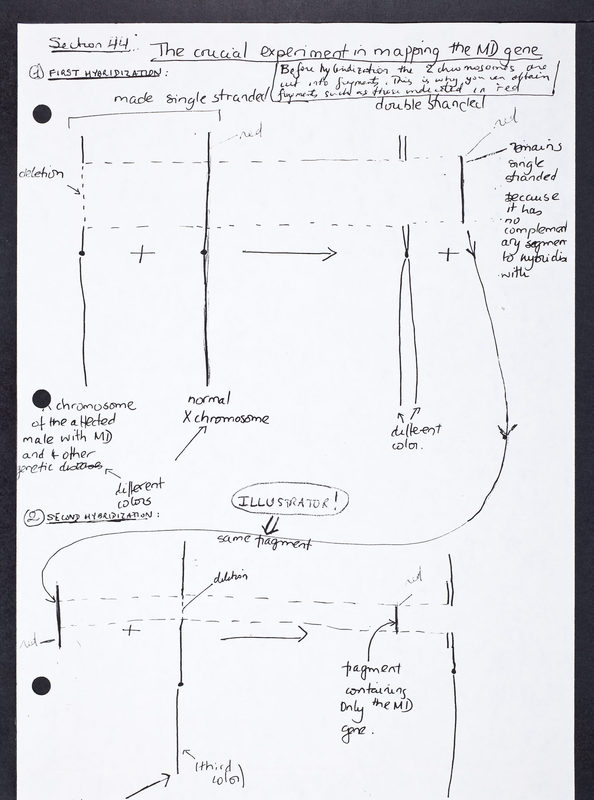 Section 44:
The crucial experiment in mapping the MD gene
① FIRST HYBRIDIZATION:
Before hybridization the 2 chromosomes are
cut into fragments. This is why you can obtain
fragments such as those indicated in red
made single stranded
double stranded
red
red
deletion
remains
single
stranded
because
it has
no
complement
ary segmen
to hybridis
with
+
+
X chromosome
of the affected
male with MD
and 4 other
genetic
normal
X chromosome
different
color.
different
colors
ILLUSTRATOR!
② SECOND HYBRIDIZATION:
same fragment
deletion
red
red
+
fragment
containing
Only the MD
gene.
(third
color)